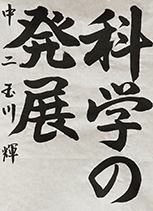 科学の
発展
中二 玉川 輝